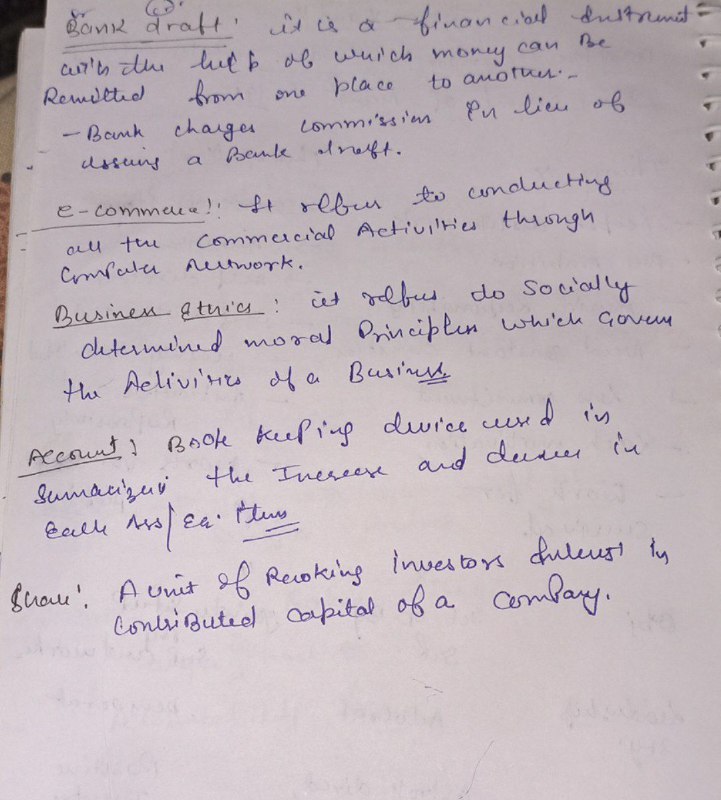 Bank draft: it is a financial Instrument
with the help of which money can Be
Remitted from one place to another.-
- Bank charges commission in lieu of
issuing a Bank draft.
e-commerce!: It refers to conducting
all the Commercial Activities through
Computer Network.
Business Ethics: it refers to Socially
determined moral Principles which Govern
the Activities of a Business
Account: Book keeping device used in
Sumarizing the Increase and decrease in
Each Ass/Eq. Items
Share: A unit of investors Interest in
Contributed capital of a company.